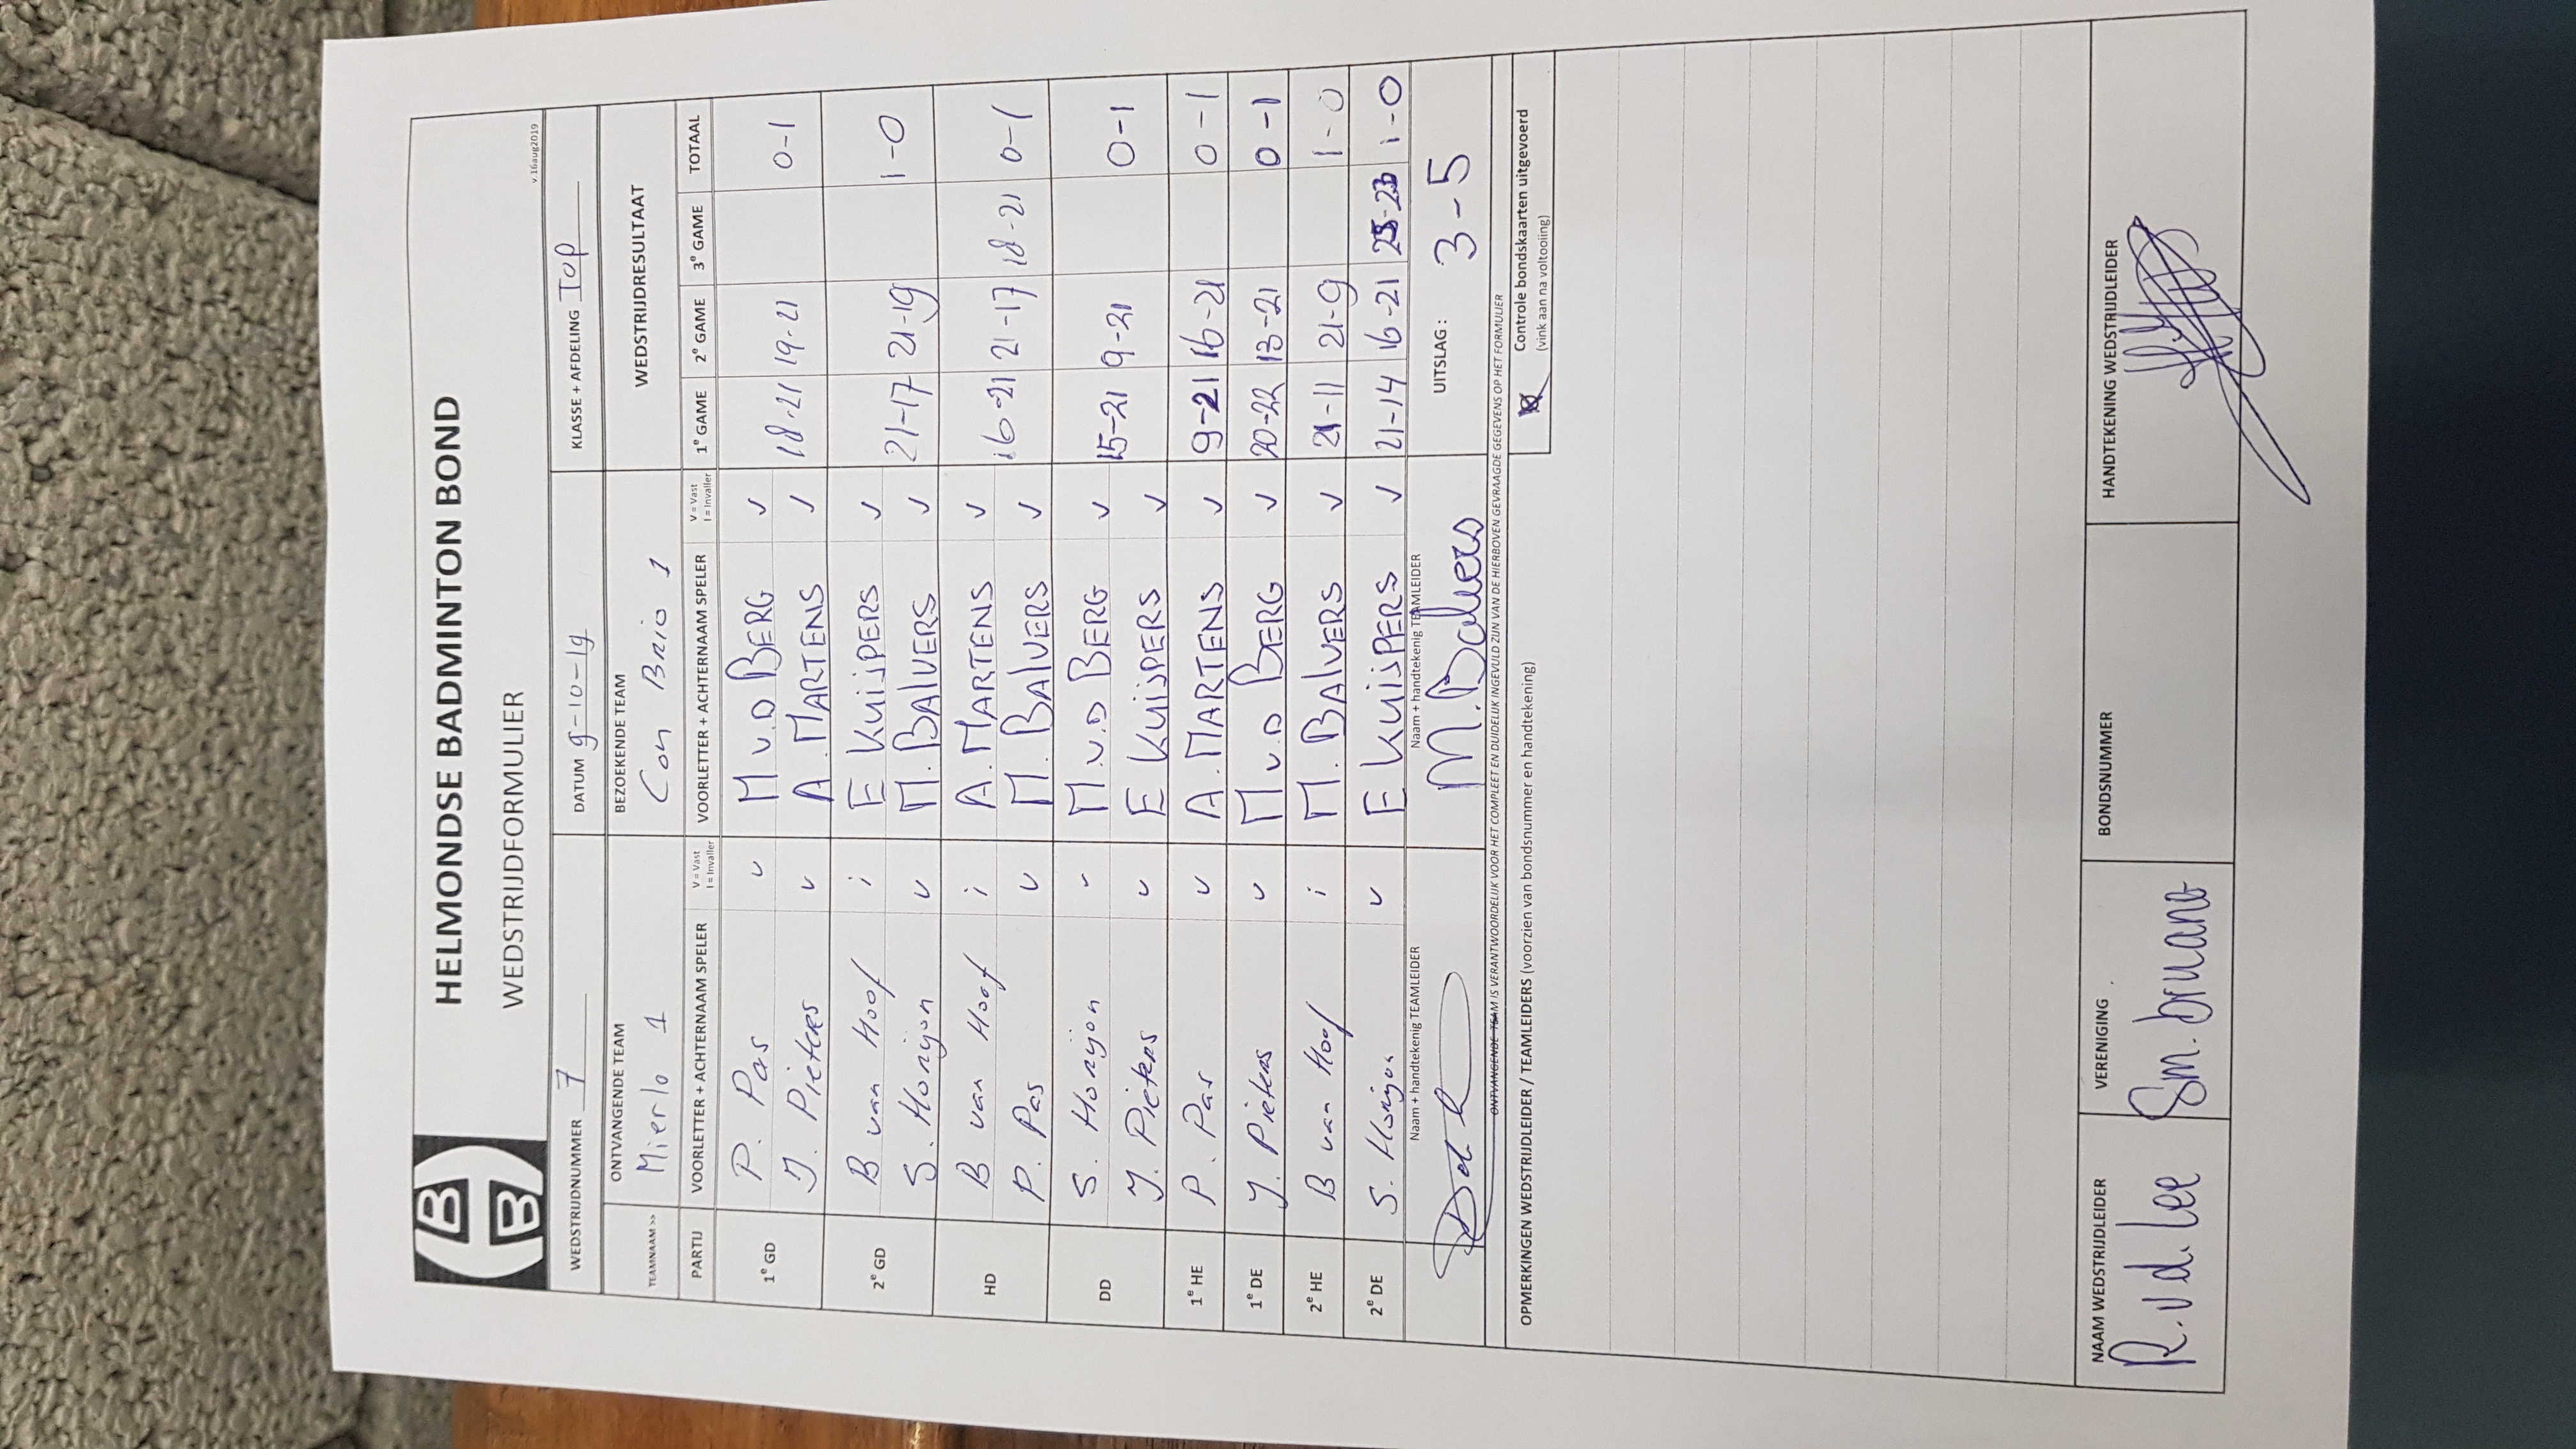 HELMONDSE BADMINTON BOND
WEDSTRIJDFORMULIER
v.16aug2019
WEDSTRIJDNUMMER 7 DATUM 9-10-19 KLASSE + AFDELING Top
TEAMNAAM >> ONTVANGENDE TEAM BEZOEKENDE TEAM WEDSTRIJDRESULTAAT
Mierlo 1 Con Brio 1
PARTIJ VOORLETTER + ACHTERNAAM SPELER V = Vast I = Invaller VOORLETTER + ACHTERNAAM SPELER V = Vast I = Invaller 1e GAME 2e GAME 3e GAME TOTAAL
1e GD P. Pas v M v.D BERG v
J. Pieters v A. MARTENS v 18-21 19-21 0-1
2e GD B van Hoof i E KUijPERS v
S. Honijon v M. BAlVERS v 21-17 21-19 1-0
HD B van Hoof i A. MARTENS v
P. Pas v M. BAlVERS v 16-21 21-17 18-21 0-1
DD S. Honijon v M. v.D BERG v
J. Pieters v E KUijPERS v 15-21 9-21 0-1
1e HE P. Pas v A. MARTENS v 9-21 16-21 0-1
1e DE J. Pieters v M v.D BERG v 20-22 13-21 0-1
2e HE B van Hoof i M. BAlVERS v 21-11 21-9 1-0
2e DE S. Honijon v E KUijPERS v 21-14 16-21 25-23 1-0
Naam + handtekenig TEAMLEIDER Naam + handtekenig TEAMLEIDER UITSLAG : 3-5
M. Balvers
ONTVANGENDE TEAM IS VERANTWOORDELIJK VOOR HET COMPLEET EN DUIDELIJK INGEVULD ZIJN VAN DE HIERBOVEN GEVRAAGDE GEGEVENS OP HET FORMULIER
OPMERKINGEN WEDSTRIJDLEIDER / TEAMLEIDERS (voorzien van bondsnummer en handtekening) Controle bondskaarten uitgevoerd
(vink aan na voltooiing)
NAAM WEDSTRIJDLEIDER VERENIGING BONDSNUMMER HANDTEKENING WEDSTRIJDLEIDER
R. v d. Lee